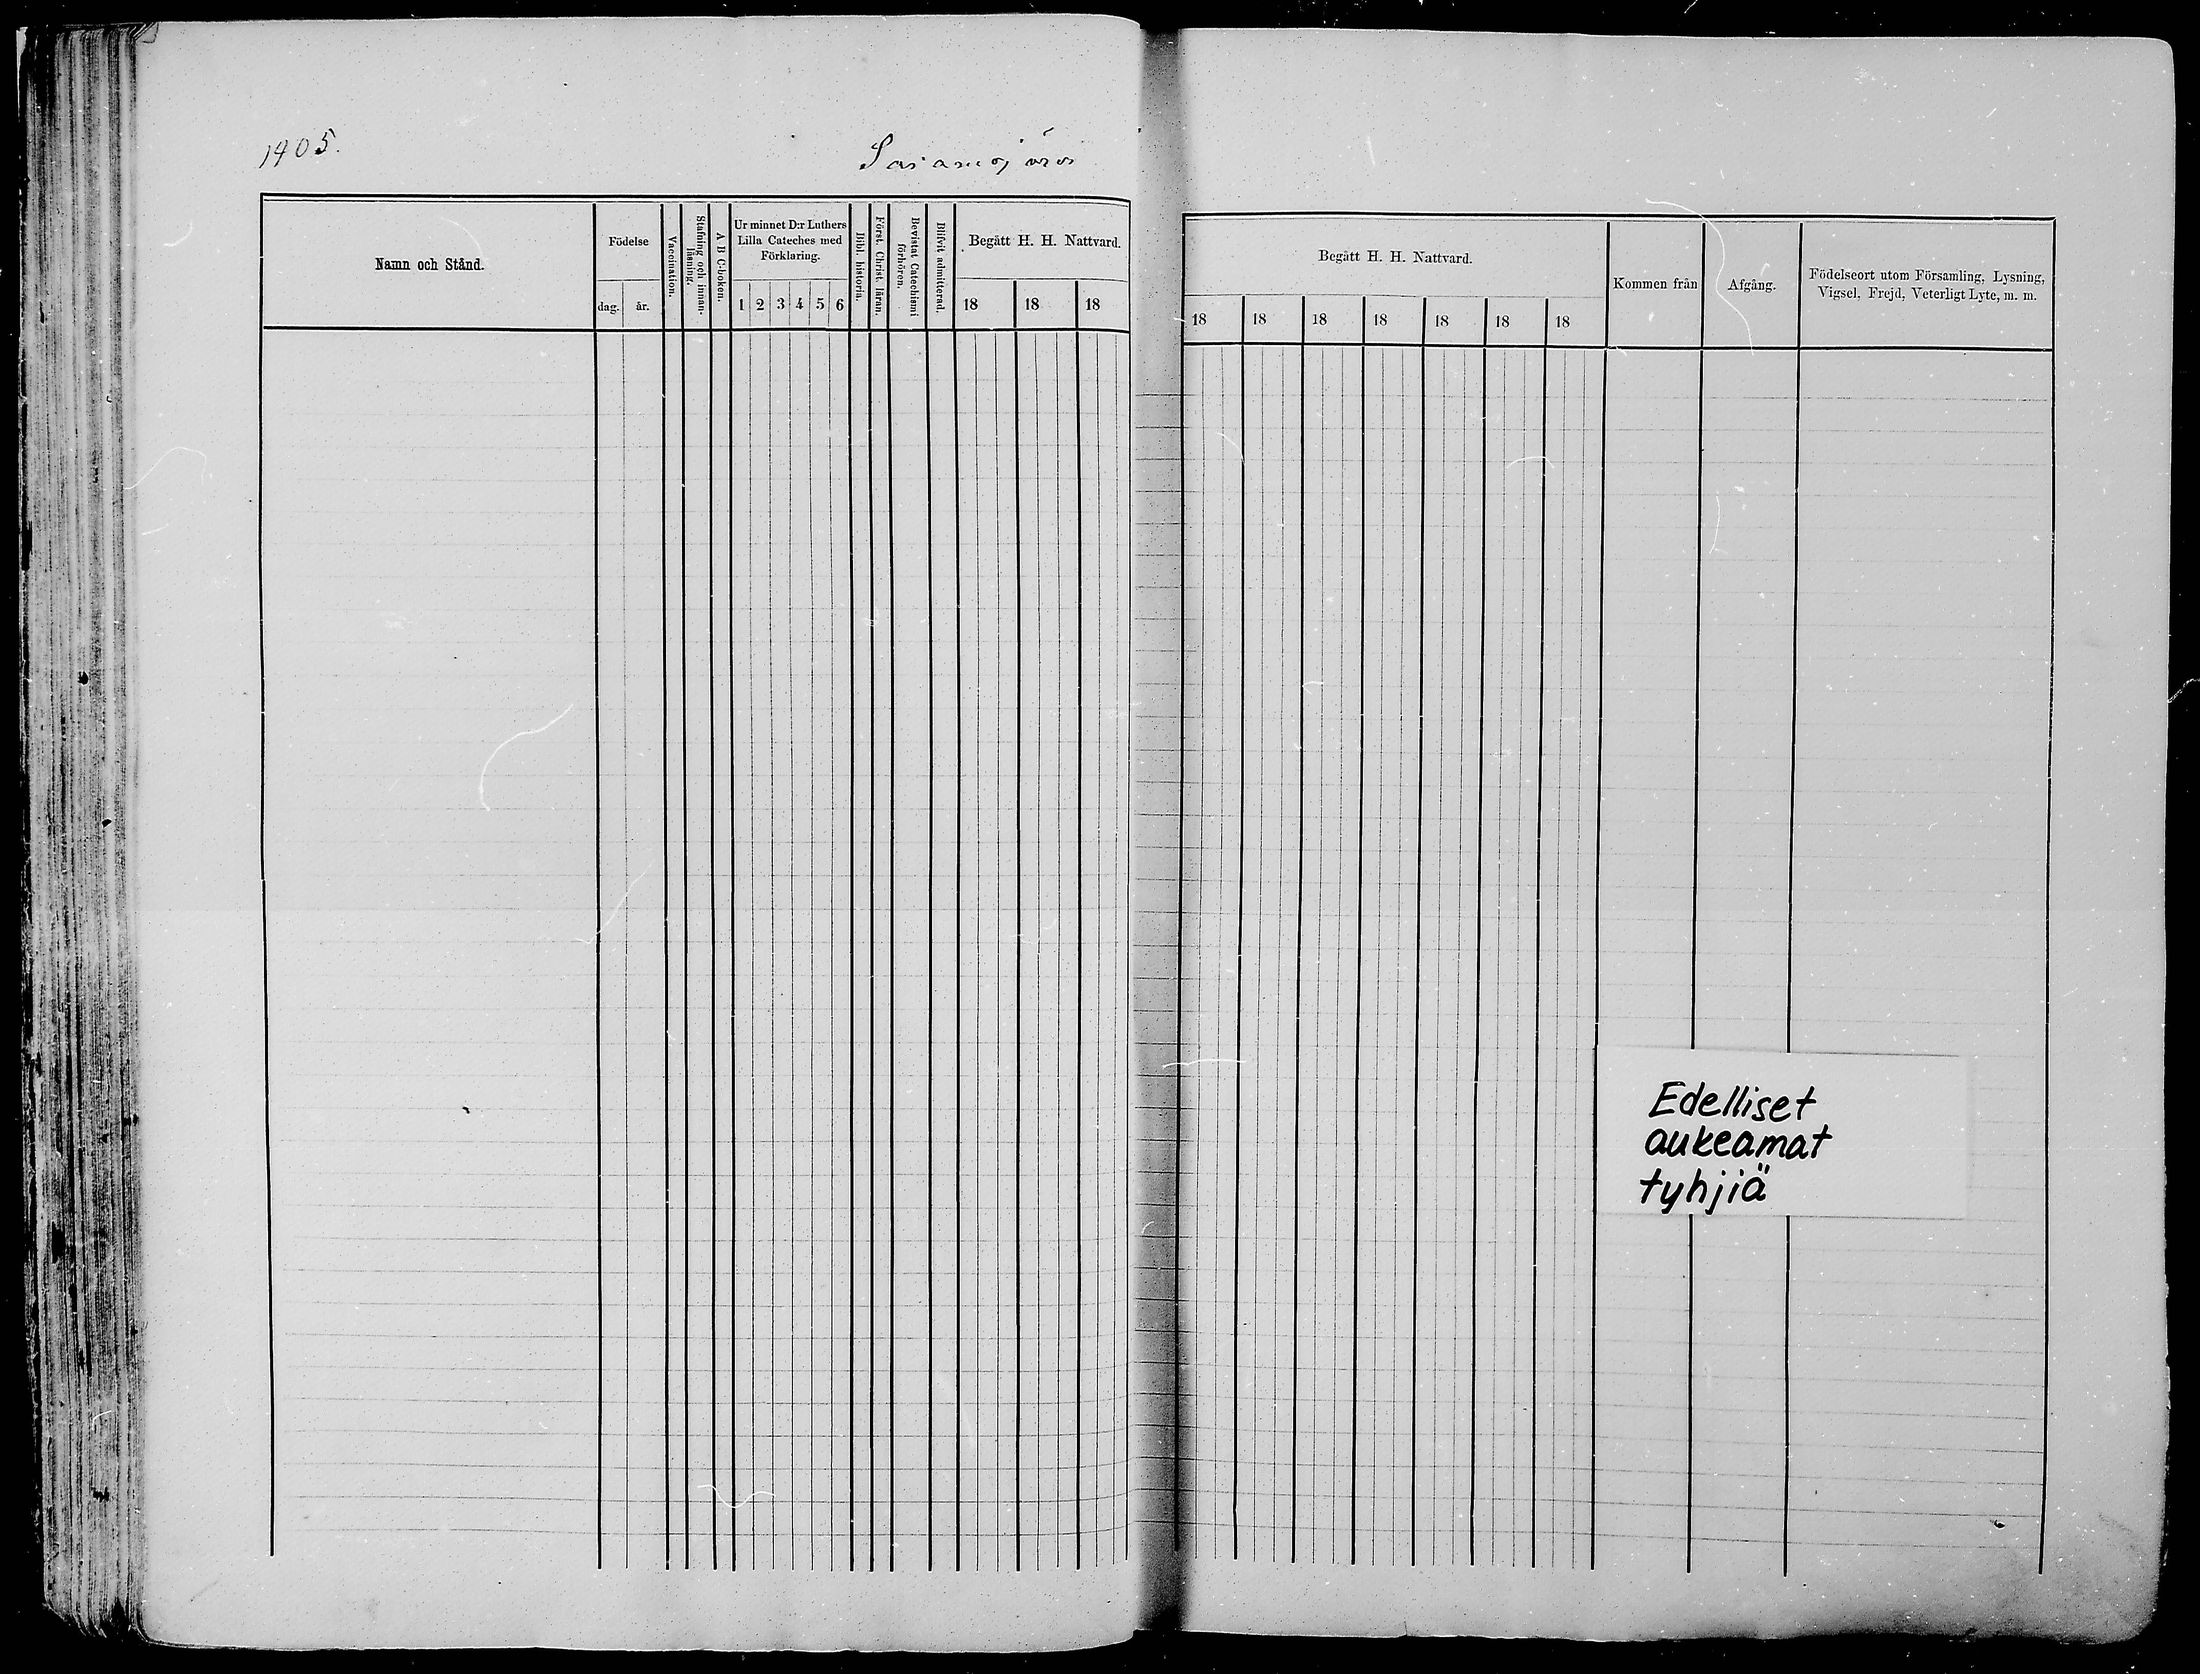 1405.
Namn och Stånd.
Födelse
dag.
år.
Vaccination.
Stafning och innan-
läsning.
A B C-boken.
Ur minnet D:r Luthers
Lilla Cateches med
Förklaring.
1 2 3 4 5 6
Bibl. historia.
Först. Christ. läran.
Bevistat Catechismi
förhören.
Blifvit admitterad.
Begått H. H. Nattvard.
18 18 18
Begått H. H. Nattvard.
18 18 18 18 18 18 18
Kommen från
Afgång.
Födelseort utom Församling, Lysning,
Vigsel, Frejd, Veterligt Lyte, m. m.
Edelliset
aukeamat
tyhjiä